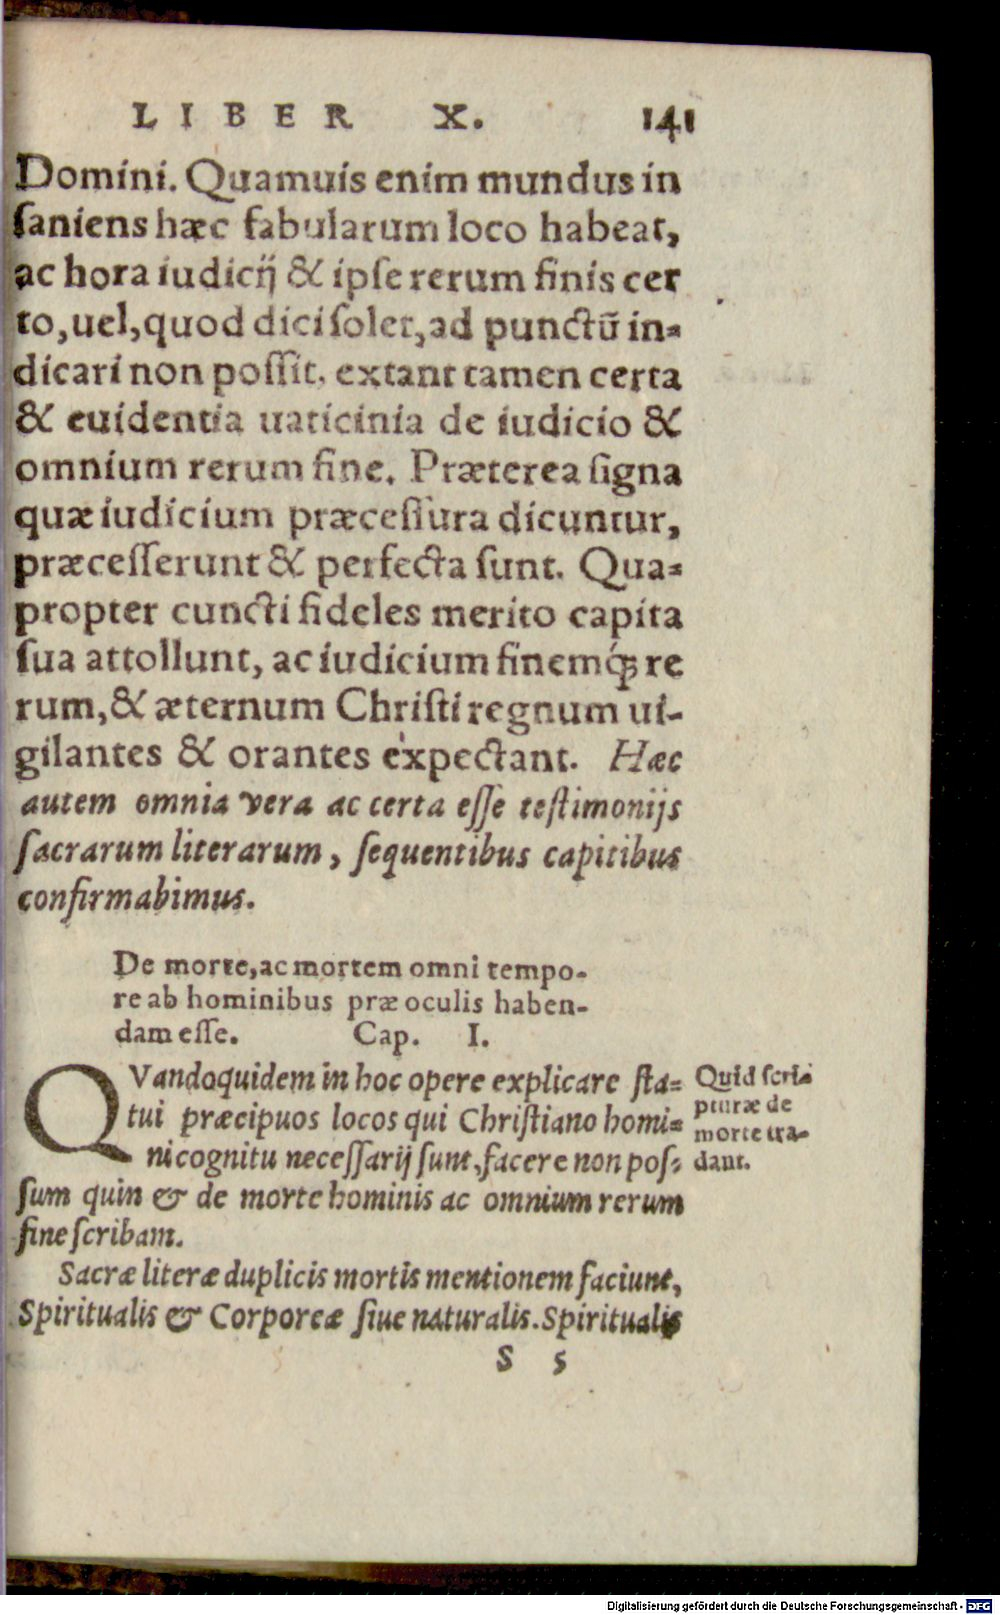 LIBER X. 141
Domini. Quamuis enim mundus in
ſaniens hæc fabularum loco habeat,
ac hora iudicij & ipſe rerum finis cer
to, uel, quod dici ſolet, ad punctū in-
dicari non poſſit, extant tamen certa
& euidentia uaticinia de iudicio &
omnium rerum fine. Præterea ſigna
quæ iudicium præceſſura dicuntur,
præceſſerunt & perfecta ſunt. Qua-
propter cuncti fideles merito capita
ſua attollunt, ac iudicium finemq́ꝫ re
rum, & æternum Chriſti regnum ui-
gilantes & orantes expectant. Hæc
autem omnia vera ac certa eſſe teſtimonijs
ſacrarum literarum, ſequentibus capitibus
confirmabimus.
De morte, ac mortem omni tempo-
re ab hominibus præ oculis haben-
dam eſſe. Cap. I.
QVandoquidem in hoc opere explicare ſta-
tui præcipuos locos qui Chriſtiano homi-
ni cognitu neceſſarij ſunt, facere non poſ-
ſum quin & de morte hominis ac omnium rerum
fine ſcribam.
Quid ſcri-
pturæ de
morte tra-
dant.
Sacræ literæ duplicis mortis mentionem faciunt,
Spiritualis & Corporeæ ſiue naturalis. Spiritualis
S 5
Digitalisierung gefördert durch die Deutsche Forschungsgemeinschaft - DFG